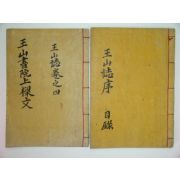 王山誌序
目錄
王山誌卷之四
王山書院上樑文